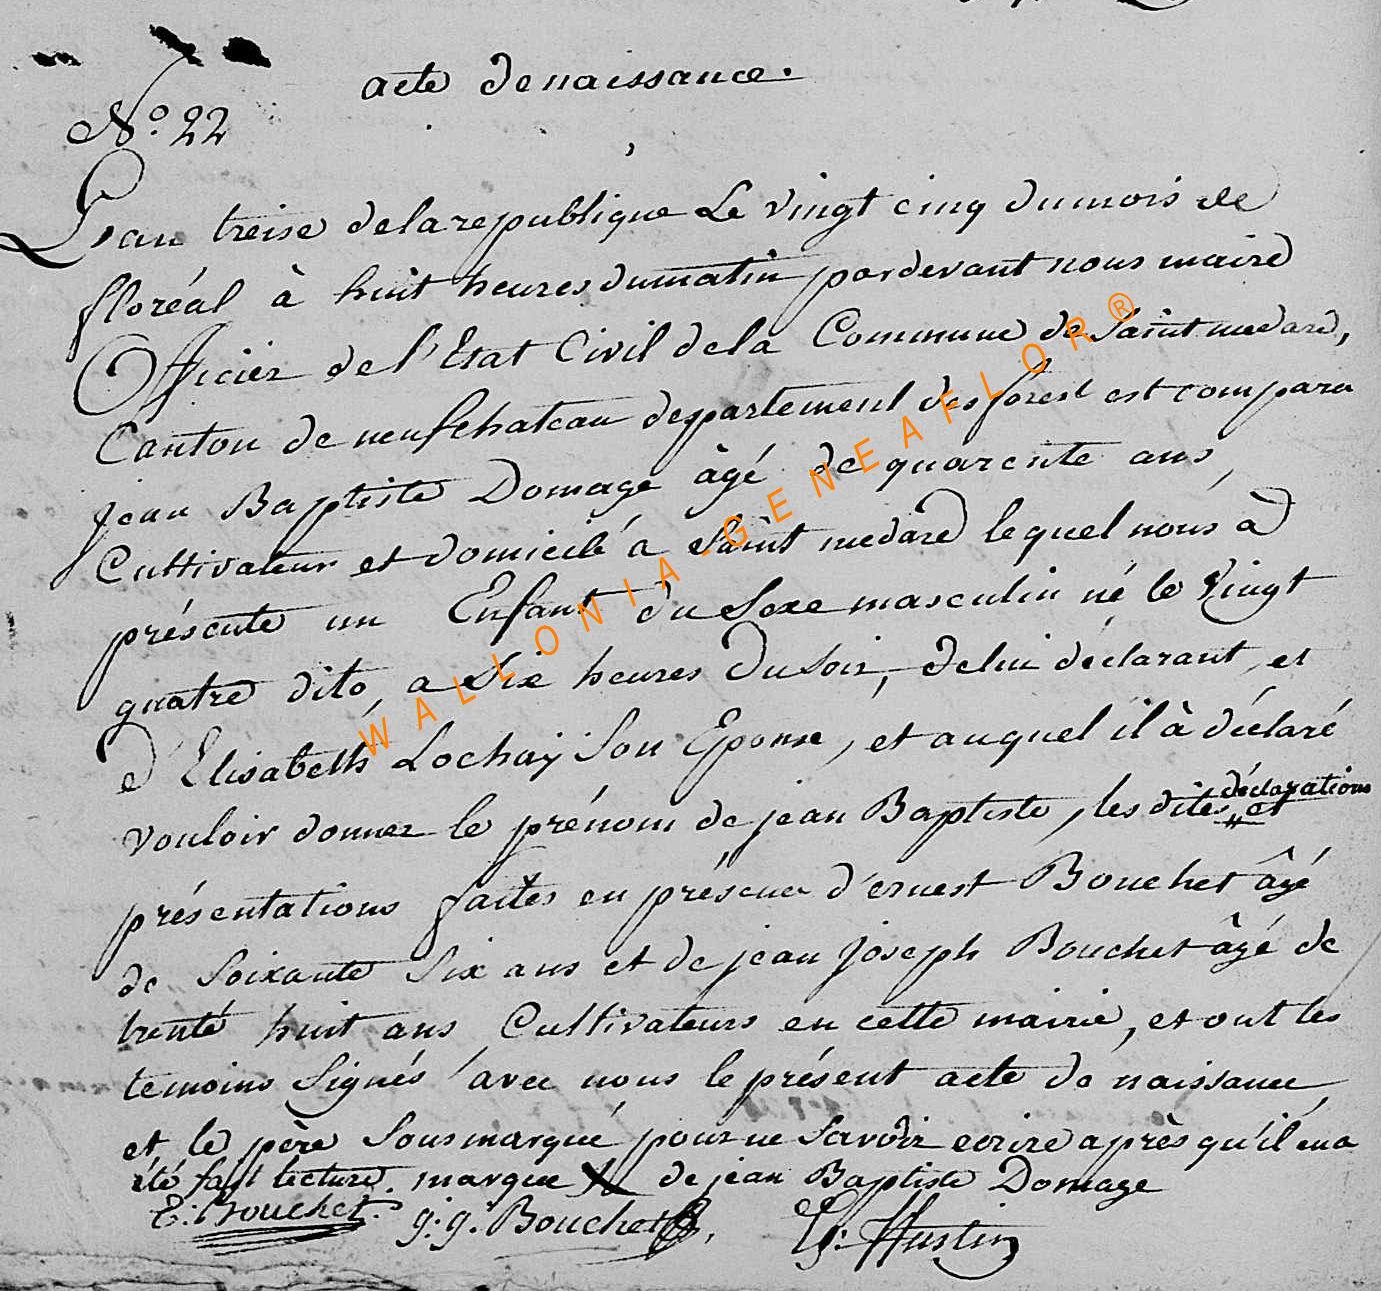 acte de naissance.
No. 22
L'an treise de la republique Le vingt cinq du mois de
floréal à huit heures du matin pardevant nous maire
Officier de l'Etat Civil de la Commune de Saint medard,
Canton de neufchateau departement des forest est comparu
jean Baptiste Domage âgé de quarente ans,
Cultivateur et domicilié a Saint medard lequel nous à
présenté un Enfant du Sexe masculin né le Vingt
quatre dito, a Six heures du Soir, de lui déclarant, et
d'Elisabeth Lochay Son Eponse, et auquel il à déclaré
vouloir donner le prénom de jean Baptiste, les dites déclarations et
présentations faites en présence d'ernest Bouchet âgé
de Soixante Six ans et de jean Joseph Bouchet âgé de
trente huit ans Cultivateurs en cette mairie, et ont les
temoins Signés avec nous le présent acte de naissance,
et le père Sousmarqué pour ne Savoir ecrire après qu'il en a
été fait lecture. marque X de jean Baptiste Domage
E: Bouchet. g. g. Bouchet, Hustin
WALLONIA-GENEAFLOR®